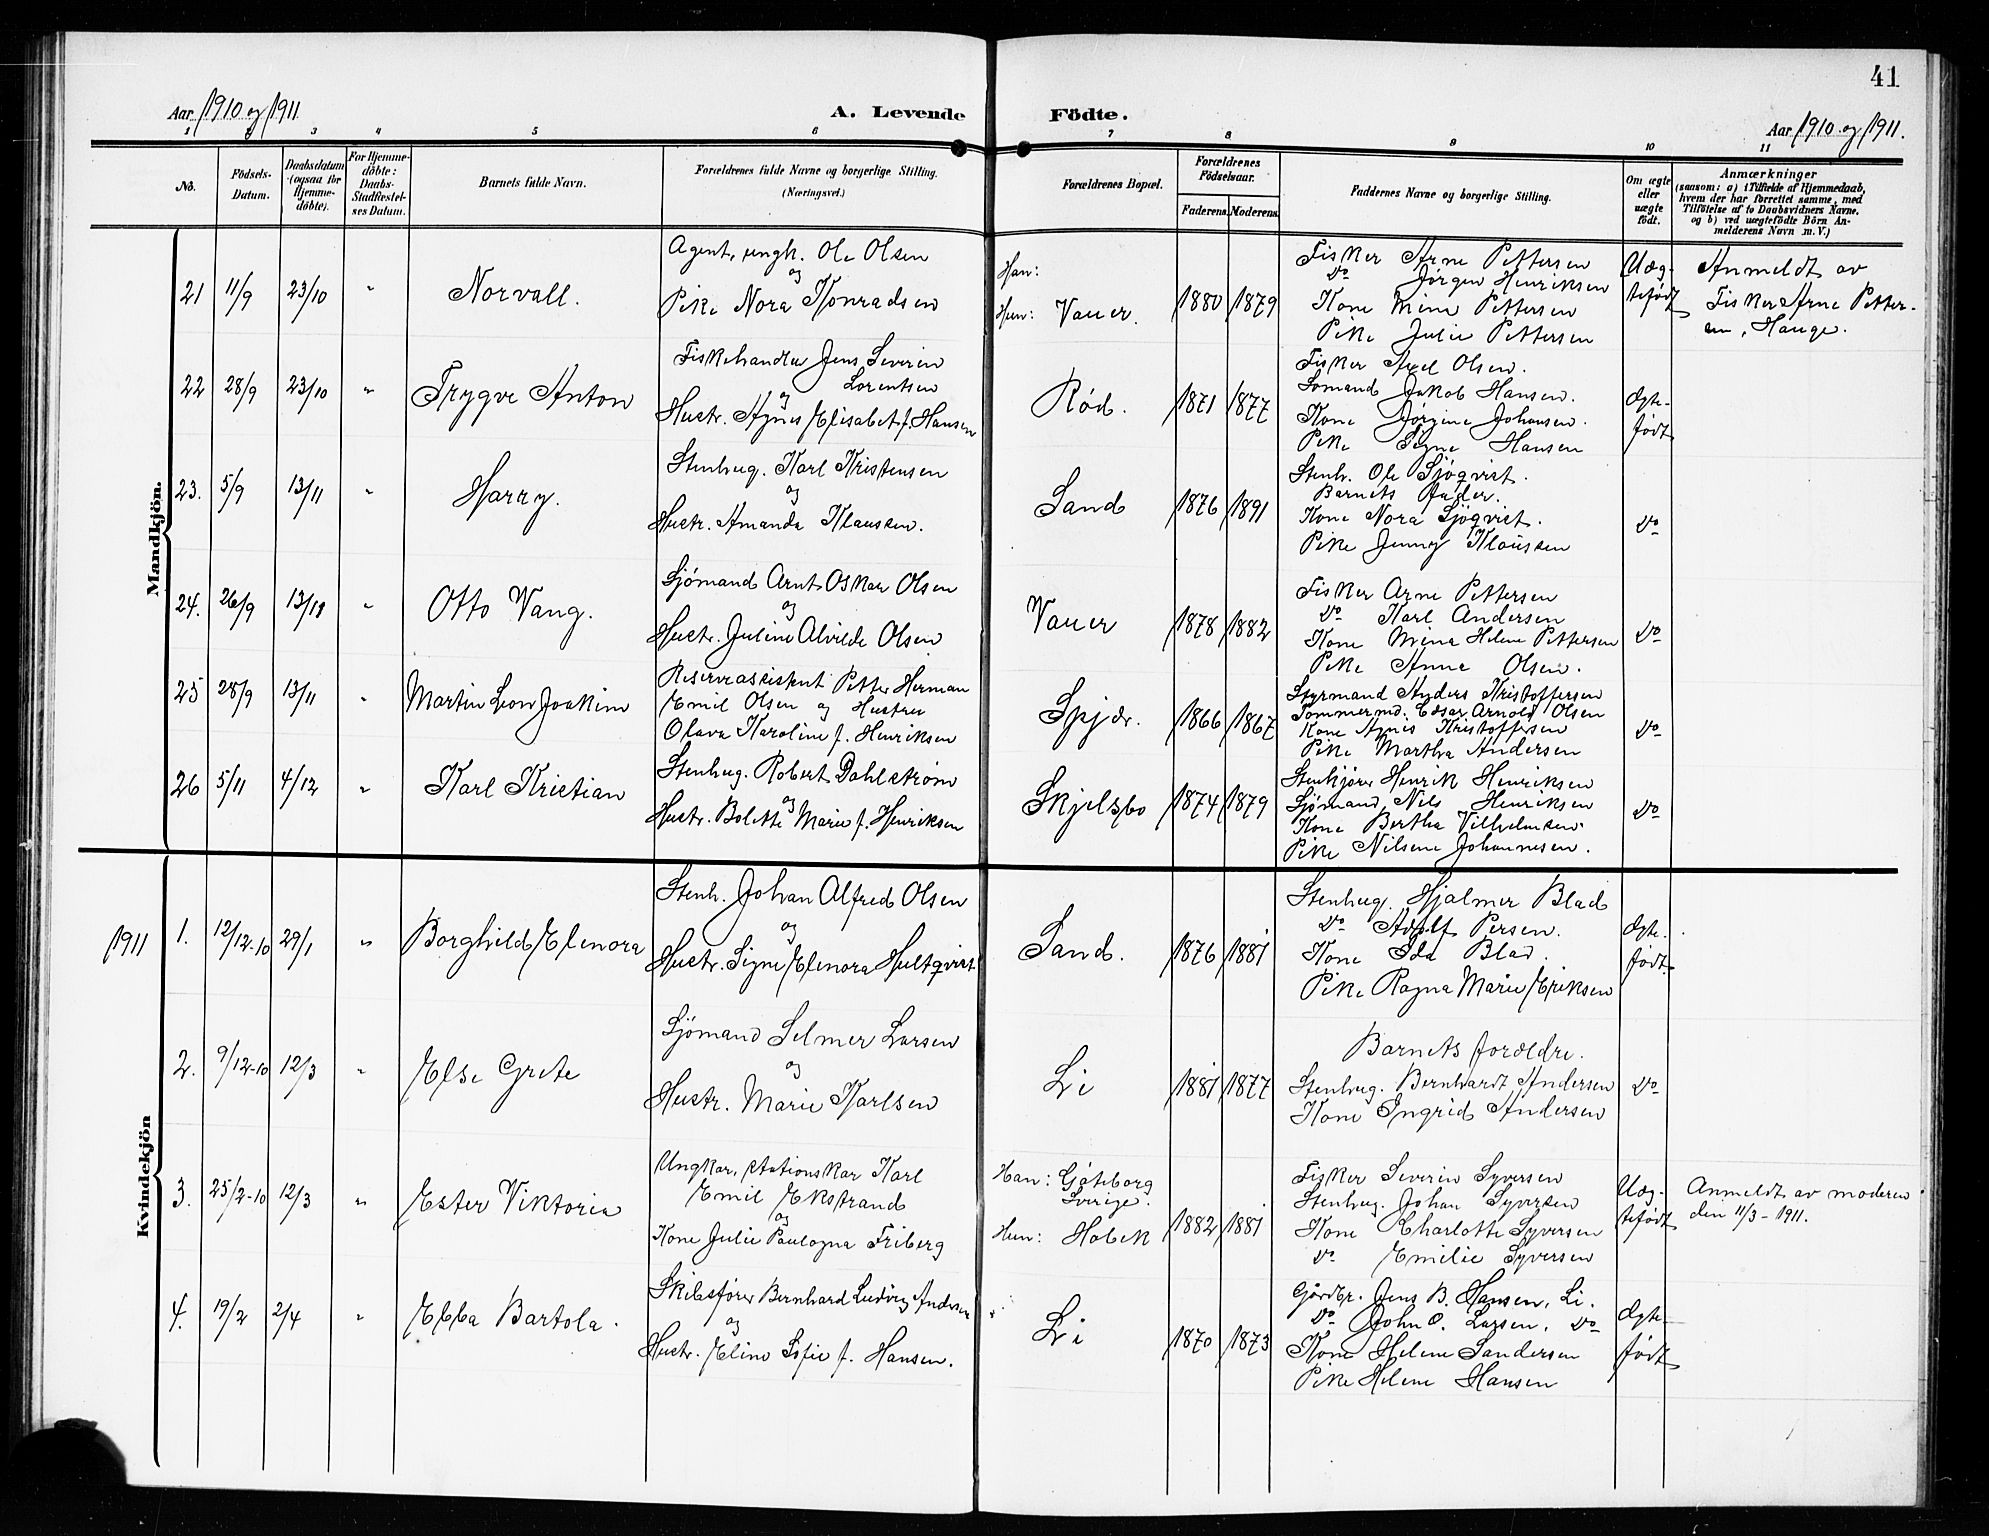 41
Aar 1910 og 1911
A. Levende
Födte.
Aar 1910 og 1911.
1 2 3 4 5 6 7 8 9 10 11
No.
Födsels-
Datum.
Daabsdatum
(ogsaa for
Hjemme-
döbte).
For Hjemme-
döbte:
Daabs-
Stadfæstel-
ses Datum.
Barnets fulde Navn.
Forældrenes fulde Navne og borgerlige Stilling.
(Næringsvei.)
Forældrenes Bopæl.
Forældrenes
Födselsaar.
Faderens. Moderens.
Faddernes Navne og borgerlige Stilling.
Om ægte
eller
uægte
födt.
Anmærkninger
(saasom: a) i Tilfælde af Hjemmedaab,
hvem der har forrettet samme, med
Tilföielse af to Daabsvidners Navne.
og b) ved uægtefödte Börn An-
melderens Navn m. V.)
Mandkjön.
21 11/9 23/10 " Norvall.
Agent, ungk. Ole Olsen
og
Pike Nora Konradsen
Han:
Hun: Vauer.
1880 1879
Fisker Arne Pettersen
do Jörgen Henriksen
Kone Mina Pettersen
Pike Julie Pettersen
Uæg-
tefödt
Anmeldt av
Fisker Arne Petter-
sen, Hauge.
22 28/9 23/10 " Trygve Anton
Fiskehandler Jens Severin
Lorentsen
og
Hustr. Agnes Elisabet f. Hansen
Röd.
1871 1877
Fisker Axel Olsen.
Sömand Jakob Hansen.
Kone Jörgine Johansen.
Pike Signe Hansen
Ægte-
födt
23. 5/9 13/11 " Harry.
Stenhug. Karl Kristensen
og
Hustr. Amanda Klaussen.
Sand
1876 1891
Stenh. Ole Sjöqvist.
Barnets Fader.
Kone Nora Sjöqvist.
Pike Jenny Klaussen
do
24. 26/9 13/11 " Otto Vang.
Sjömand Arnt Oskar Olsen
og
Hustr. Juline Alvilde Olsen
Vauer
1878 1882
Fisker Arne Pettersen
do Karl Andersen
Kone Mina Helene Pettersen
Pike Anna Olsen.
do
25 28/9 13/11 " Martin Leon Joakim
Reserveassistent Petter Herman
Emil Olsen og Hustru
Olava Karoline f. Henriksen
Spjær.
1866 1867
Styrmand Anders Kristoffersen
Tömmermd. Edvar Arnold Olsen
Kone Agnes Kristoffersen
Pike Martha Andersen
do
26 5/11 4/12 " Karl Kristian
Stenhug. Robert Dahlström
og
Hustr. Bolette Marie f. Henriksen
Skjelsbo
1874 1879
Stenkjörer Henrik Henriksen
Sjömand, Nils Henriksen
Kone Bertha Vilhelmsen.
Pike Nilsene Johannesen.
do
Kvindekjön
1911 1. 12/12-10 29/1 " Borghild Elenora
Stenh. Johan Alfred Olsen
og
Hustr. Signe Elenora Hultqvist
Sand.
1876 1881
Stenhug. Hjalmer Blad
do Adolf Persen.
Kone Ida Blad.
Pike Ragna Marie Eriksen
Ægte-
födt.
2. 9/12-10 12/3 " Else Grete
Sjömand Selmer Larsen
og
Hustr. Marie Karlsen
Li
1881 1877
Barnets forældre.
Stenhug. Bernhardt Andersen
Kone Ingrid Andersen
do
3. 25/2-10 12/3 " Ester Viktoria
Ungkar, stationskar Karl
Emil Ekstrand
og
Kone Julie Paulogna Friberg
Han: Göteborg
Sverige.
Hun: Habek
1882 1881
Fisker Severin Syversen
Stenhug. Johan Syversen
Kone Charlotte Syversen
do Emilie Syversen
Uæg-
tefödt
Anmeldt av moderen
den 11/3-1911.
4. 19/2 2/4 " Ebba Bartola.
Skibsförer Bernhard Ludvig Andersen
og
Hustr. Eline Sofie f. Hansen.
Li
1870 1873
Gårdbr. Jens B. Hansen, Li.
do John O. Larsen, do
Kone Helene Sandersen
Pike Helene Hansen
Ægte-
födt